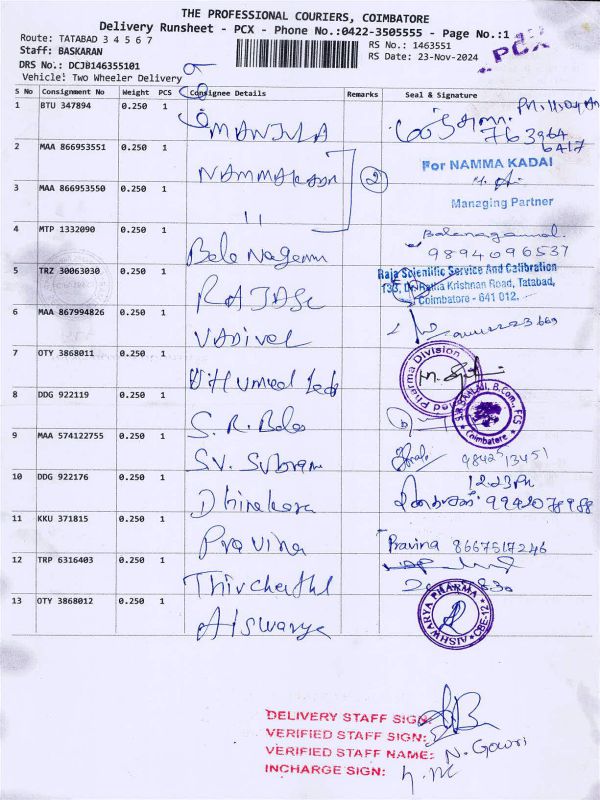 THE PROFESSIONAL COURIERS, COIMBATORE
Delivery Runsheet - PCX - Phone No.:0422-3505555 - Page No.:1
PCX
Route: TATABAD 3 4 5 6 7
RS No.: 1463551
Staff: BASKARAN
RS Date: 23-Nov-2024
DRS No.: DCJB146355101
Vehicle: Two Wheeler Delivery
S No Consignment No Weight PCS Consignee Details Remarks Seal & Signature
1 BTU 347894 0.250 1 MANJULA
763964
6417
2 MAA 866953551 0.250 1 NAMMAKADAI 2 For NAMMA KADAI
3 MAA 866953550 0.250 1 " Managing Partner
4 MTP 1332090 0.250 1 Bala Nagamm Balanagammal
9894096537
5 TRZ 30063030 0.250 1 RAJASC Raja Scientific Service And Calibration
133, Dr. Radha Krishnan Road, Tatabad,
Coimbatore - 641 012.
6 MAA 867994826 0.250 1 VADIVEL
7 OTY 3868011 0.250 1
Pharma Division
8 DDG 922119 0.250 1 S. R. Bala
B.Com., FCS
Coimbatore
9 MAA 574122755 0.250 1 SV. Subram 98425 13451
10 DDG 922176 0.250 1 Dhinakara 9942078988
11 KKU 371815 0.250 1 Pravina Pravina 8667517246
12 TRP 6316403 0.250 1
13 OTY 3868012 0.250 1 Aiswarya AISHWARYA PHARMA CBE-12
DELIVERY STAFF SIGN:
VERIFIED STAFF SIGN:
VERIFIED STAFF NAME: N. Gowri
INCHARGE SIGN: